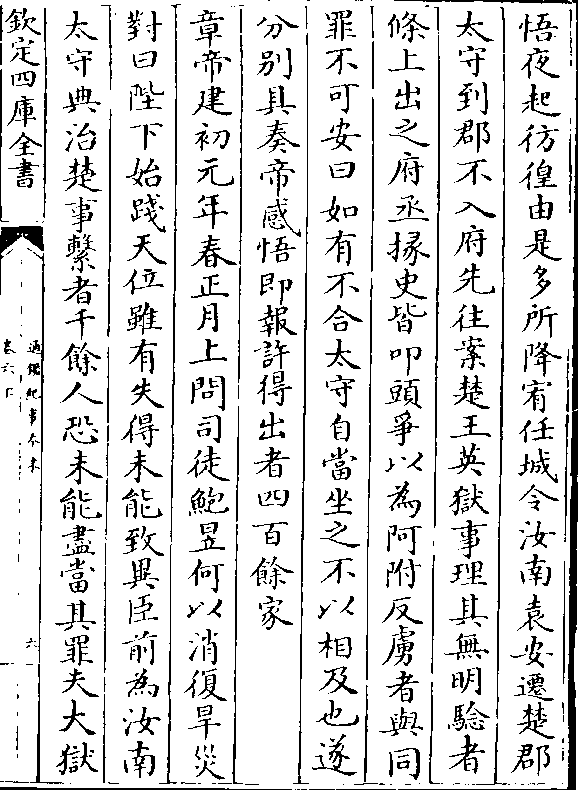 悟夜起彷徨由是多所降宥任城令汝南袁安遷楚郡
太守到郡不入府先往案楚王英獄事理其無明驗者
條上出之府丞掾史皆叩頭爭以為阿附反虜者與同
罪不可安曰如有不合太守自當坐之不以相及也遂
分别具奏帝感悟即報許得出者四百餘家
章帝建初元年春正月上問司徒鮑昱何以消復旱災
對曰陛下始踐天位雖有失得未能致異臣前為汝南
太守典治楚事繫者千餘人恐未能盡當其罪夫大獄
欽定四庫全書
通鑑紀事本末
卷六下
六